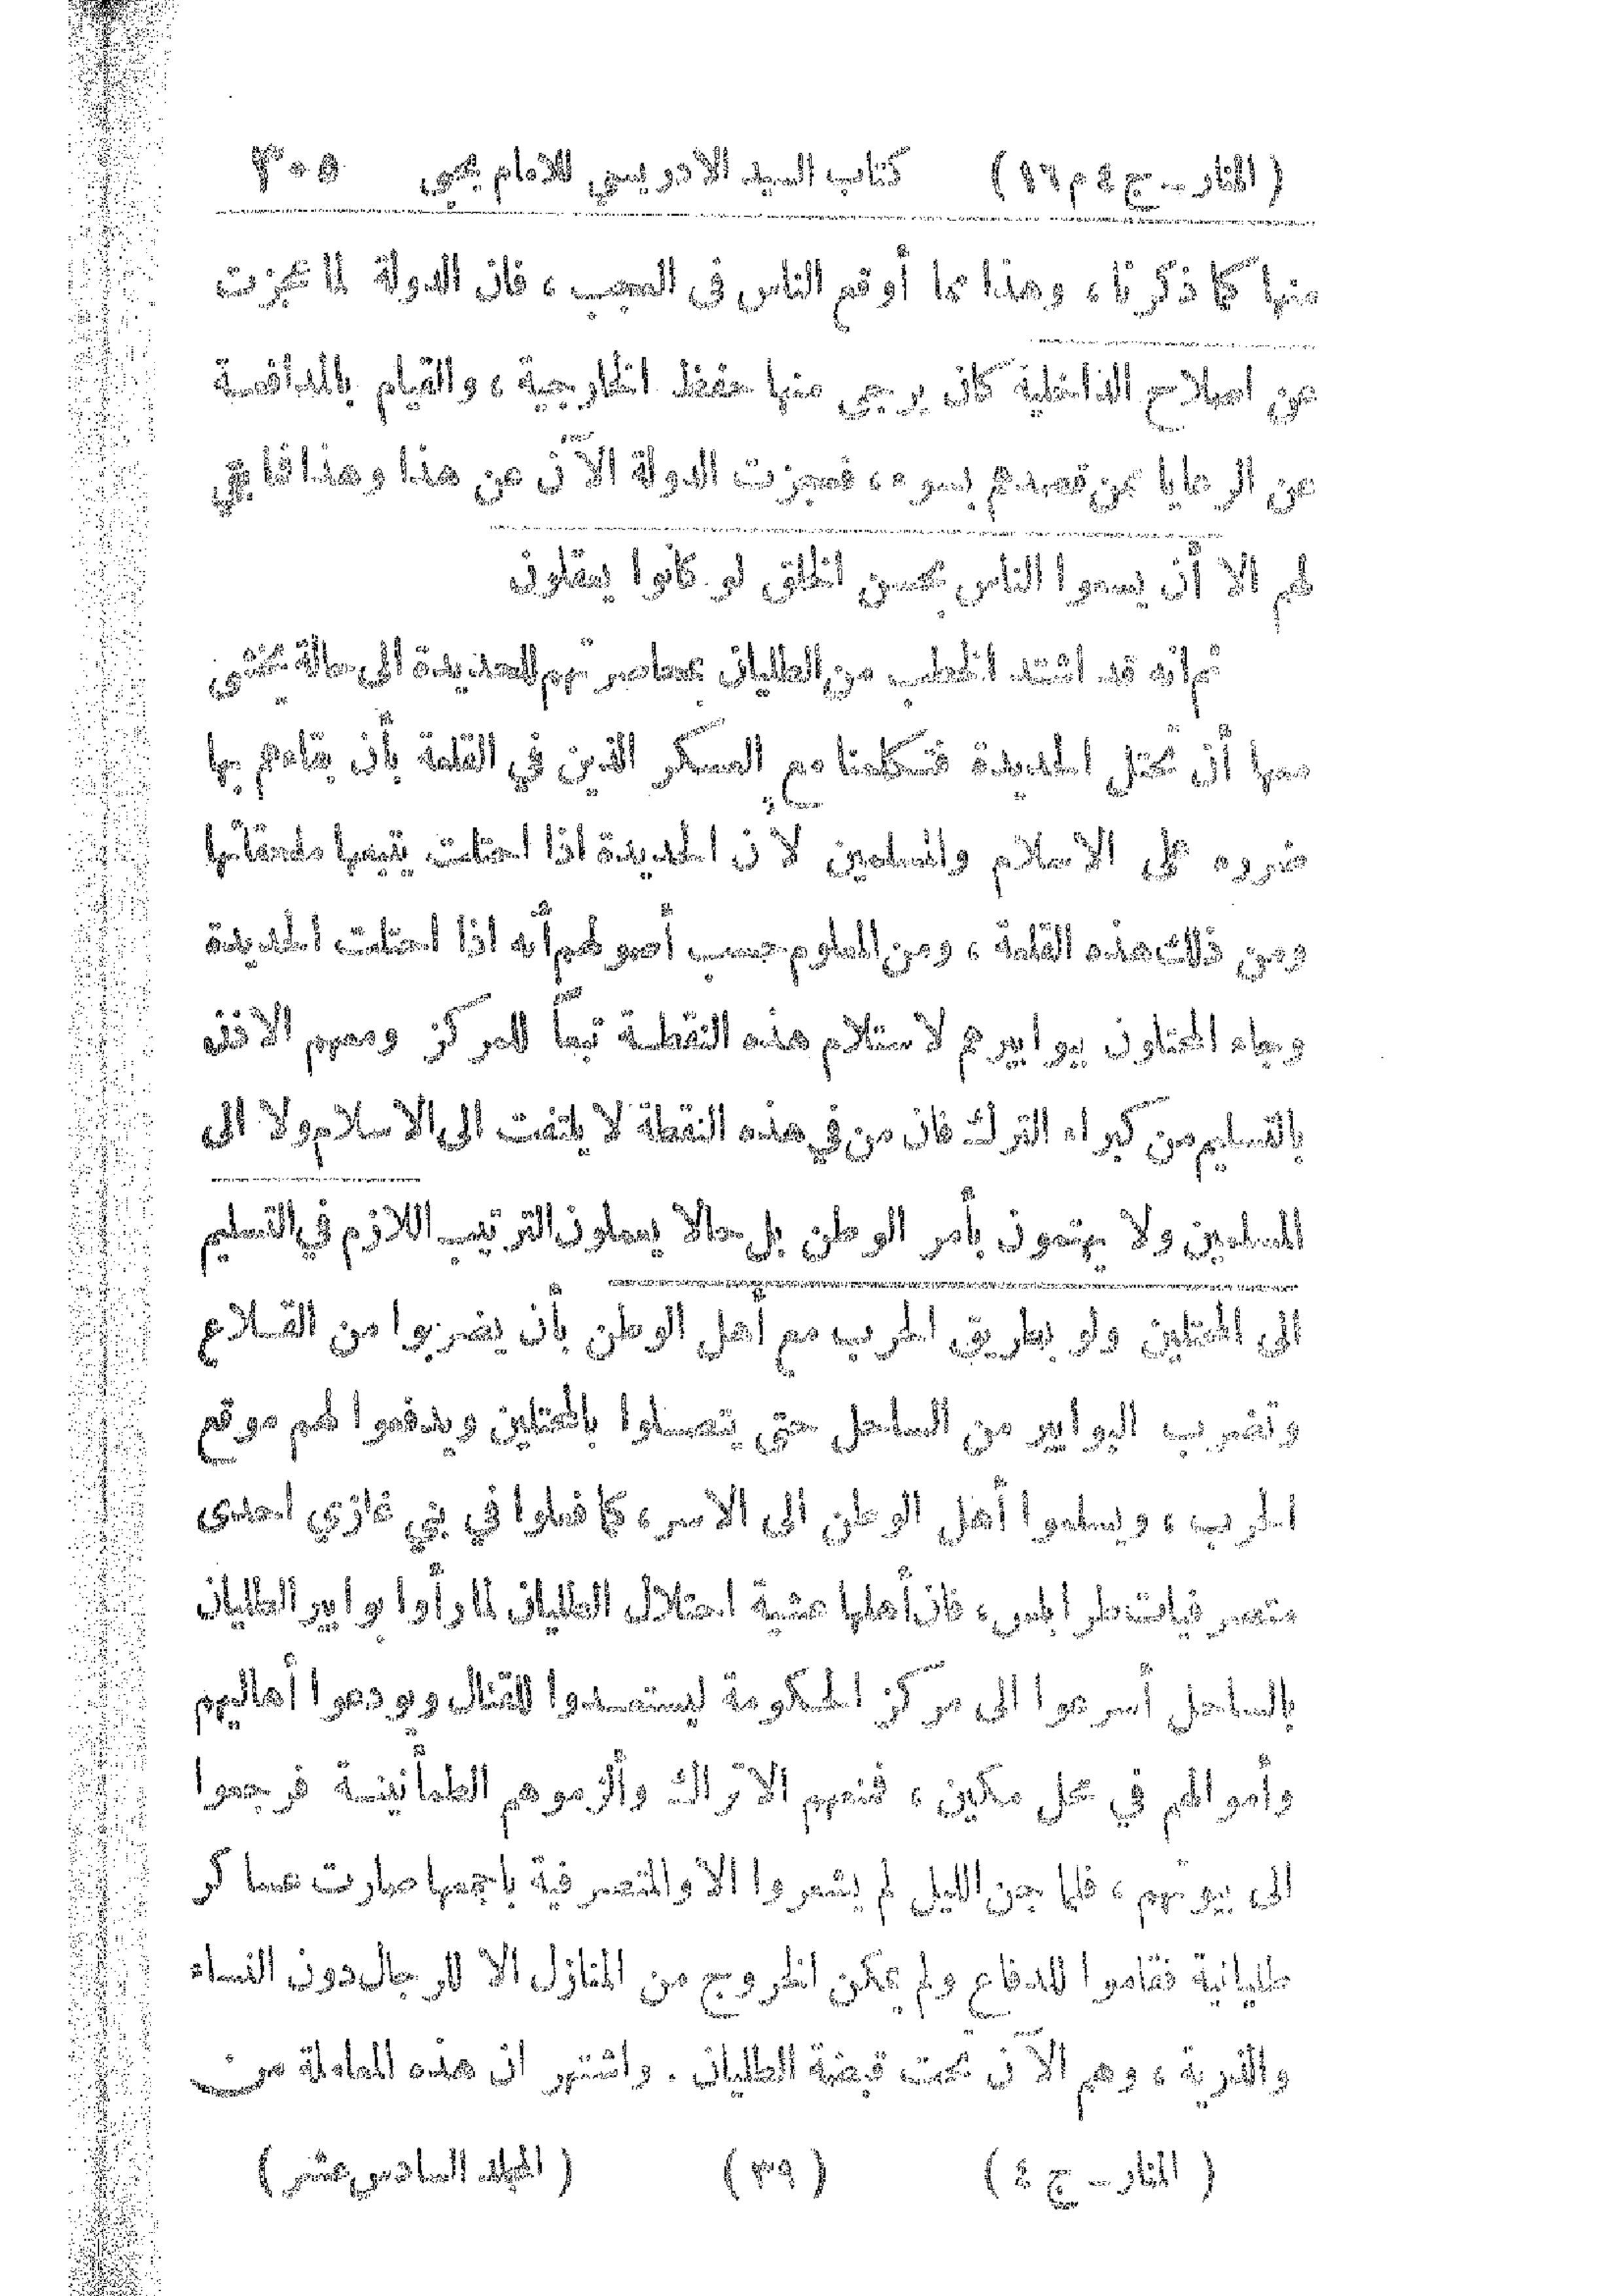 ( المنار ــ ج ٤ م ١٦ ) كتاب السيد الادريسي للامام يحيى ٣٠٥
منها كما ذكرنا، وهذا مما أوقع الناس فى العجب، فان الدولة لما عجزت
عن اصلاح الداخلية كان يرجى منها حفظ الخارجية، والقيام بالمدافعة
عن الرعايا ممن قصدهم بسوء، فعجزت الدولة الآن عن هذا وهذا فما بقي
لهم الا أن يسعوا الناس بحسن الخلق لو كانوا يعقلون
ثم انه قد اشتد الخطب من الطليان بمحاصرتهم للحديدة الى حالة يخشى
معها أن تحتل الحديدة فتكلمنا مع العسكر الذين في القلعة بأن بقاءهم بها
ضرره على الاسلام والمسلمين لان الحديدة اذا احتلت يتبعها ملحقاتها
ومن ذلك هذه القلعة، ومن المعلوم حسب أصولهم أنه اذا احتلت الحديدة
وجاء المحتلون بوابيرهم لاستلام هذه النقطة تبعاً للمركز ومعهم الاذن
بالتسليم من كبراء الترك فان من في هذه النقطة لا يلتفت الى الاسلام ولا الى
المسلمين ولا يهتمون بأمر الوطن بل حالا يعملون الترتيب اللازم في التسليم
الى المحتلين ولو بطريق الحرب مع أهل الوطن بأن يضربوا من القلاع
وتضرب البوابير من الساحل حتى يتصلوا بالمحتلين ويدفعوا لهم موقع
الحرب، ويسلموا أهل الوطن الى الاسر، كما فعلوا في بني غازي احدى
متصرفيات طرابلس، فان أهلها عشية احتلال الطليان لما رأوا بوابير الطليان
بالساحل أسرعوا الى مركز الحكومة ليستعدوا للقتال ويودعوا أهاليهم
وأموالهم في محل مكين، فمنعهم الاتراك وألزموهم الطمأنينة فرجعوا
الى بيوتهم، فلما جن الليل لم يشعروا الا والمتصرفية باجمعها صارت عساكر
طليانية فقاموا للدفاع ولم يمكن الخروج من المنازل الا للرجال دون النساء
والذرية، وهم الآن تحت قبضة الطليان. واشتهر ان هذه المعاملة من
( المنار ــ ج ٤ ) ( ٣٩ ) ( المجلد السادس عشر )